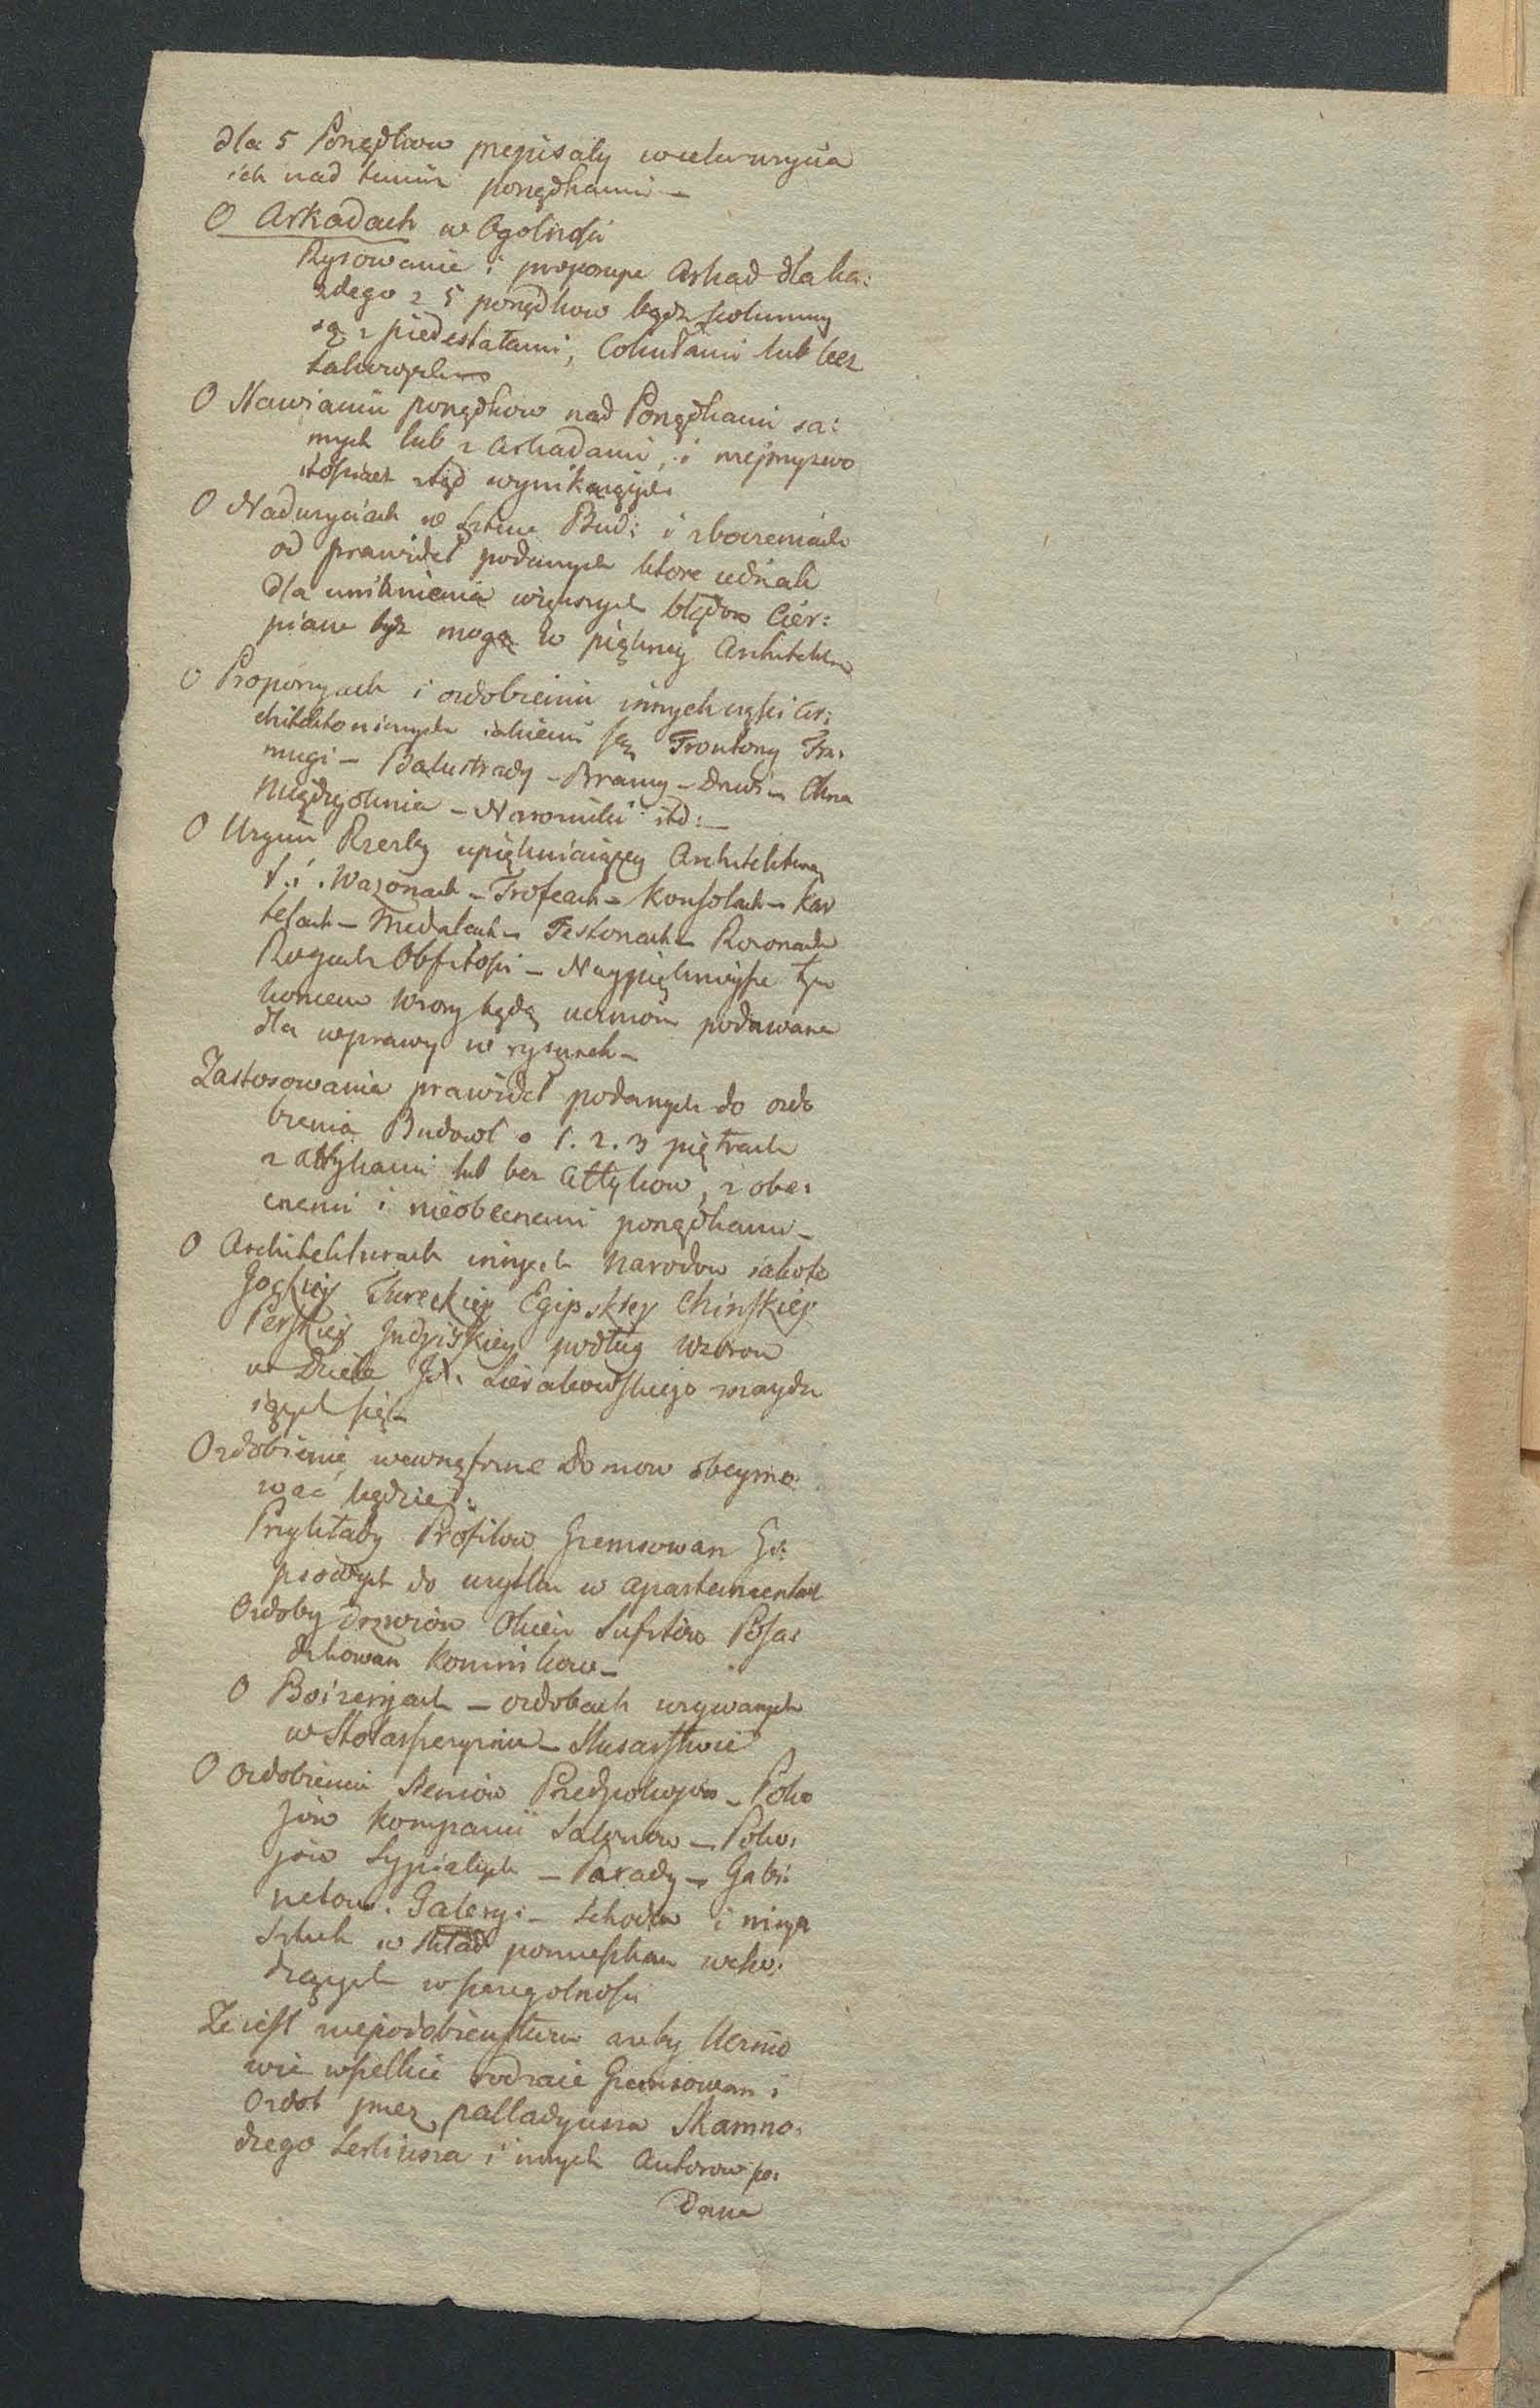 dla 5 Porządkow przepisały w ich użycia
ich nad temiż porządkami –
O Arkadach w Ogolności
Rysowanie i proporcye Arkad dla ka:
żdego z 5 porządkow bądź kolumny
są z piedestałami, Cokułami lub bez
takowych
O Stawianiu porządkow nad Porządkami sa:
mych lub z Arkadami, i nieprzyzwo
itościach ztąd wynikających
O Nadużyciach w Sztuce Bud: i zboczeniach
od prawideł podanych ktore jednak
dla uniknienia większych błędow Cier:
piane bydz mogą w piękney Architekt:
O Proporcyach i ozdobieniu innych części Ar:
chitektonicznych iakiemi są Frontony Fra:
mugi – Balustrady – Bramy – Drzwi – Okna
Międzyoknia – Narożniki itd: –
O Użyciu Rzeźby upiękniaiącey Architekturę
t. i. Wazonach – Trofeach – Konsolach – Kar
telach – Medalach – Festonach – Rozonach
Rogach Obfitości – Naypięknieysze tym
koncem Wzory będą uczniom podawane
dla wprawy w rysunek –
Zastosowania prawideł podanych do ozdo
bienia Budowl o 1. 2. 3 piętrach
z attykami lub bez Attykow, z obe:
cnemi i nieobecnemi porządkami –
O Architekturach innych Narodow iakoto
Gockiey Tureckiey Egipskiey Chinskiey
Perskiey Indyiskiey podług Wzorow
w Dziele JX. Sierakowskiego znaydu
iących się –
Ozdobienie wewnętrzne Domow obeymo
wać będzie:
Przykłady Profilow Gzemsowan Gi:
psowych do użytku w apartamentach
Ozdoby Drzwiow Okien Sufitow Posa:
dzkowan Kominkow –
O Boizeryach – ozdobach używanych
w Stolarszczyznie – Slusarstwie
O Ozdobieniu Sieniow Przedpokojow – Poko
jow Kompanii Salonow – Poko:
jow Sypialnych – Parady – Gabi:
netow. Galeryi – Schodow i innych
Sztuk w skład pomieszkan wcho:
dzących w szczegolności
Że iest niepodobieństwem ażeby Ucznio
wie wszelkie rodzaie Gzemsowan i
Ozdob przez Palladyusza Skamno:
dzego Serliusza i innych Autorow po:
dane